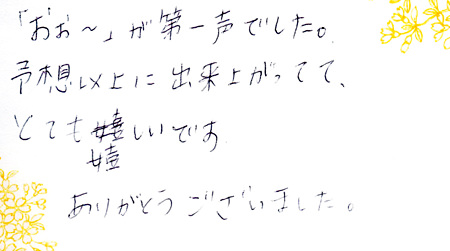 「おぉ〜」が第一声でした。
予想以上に出来上がってて、
とても嬉しいです
嬉
ありがとうございました。